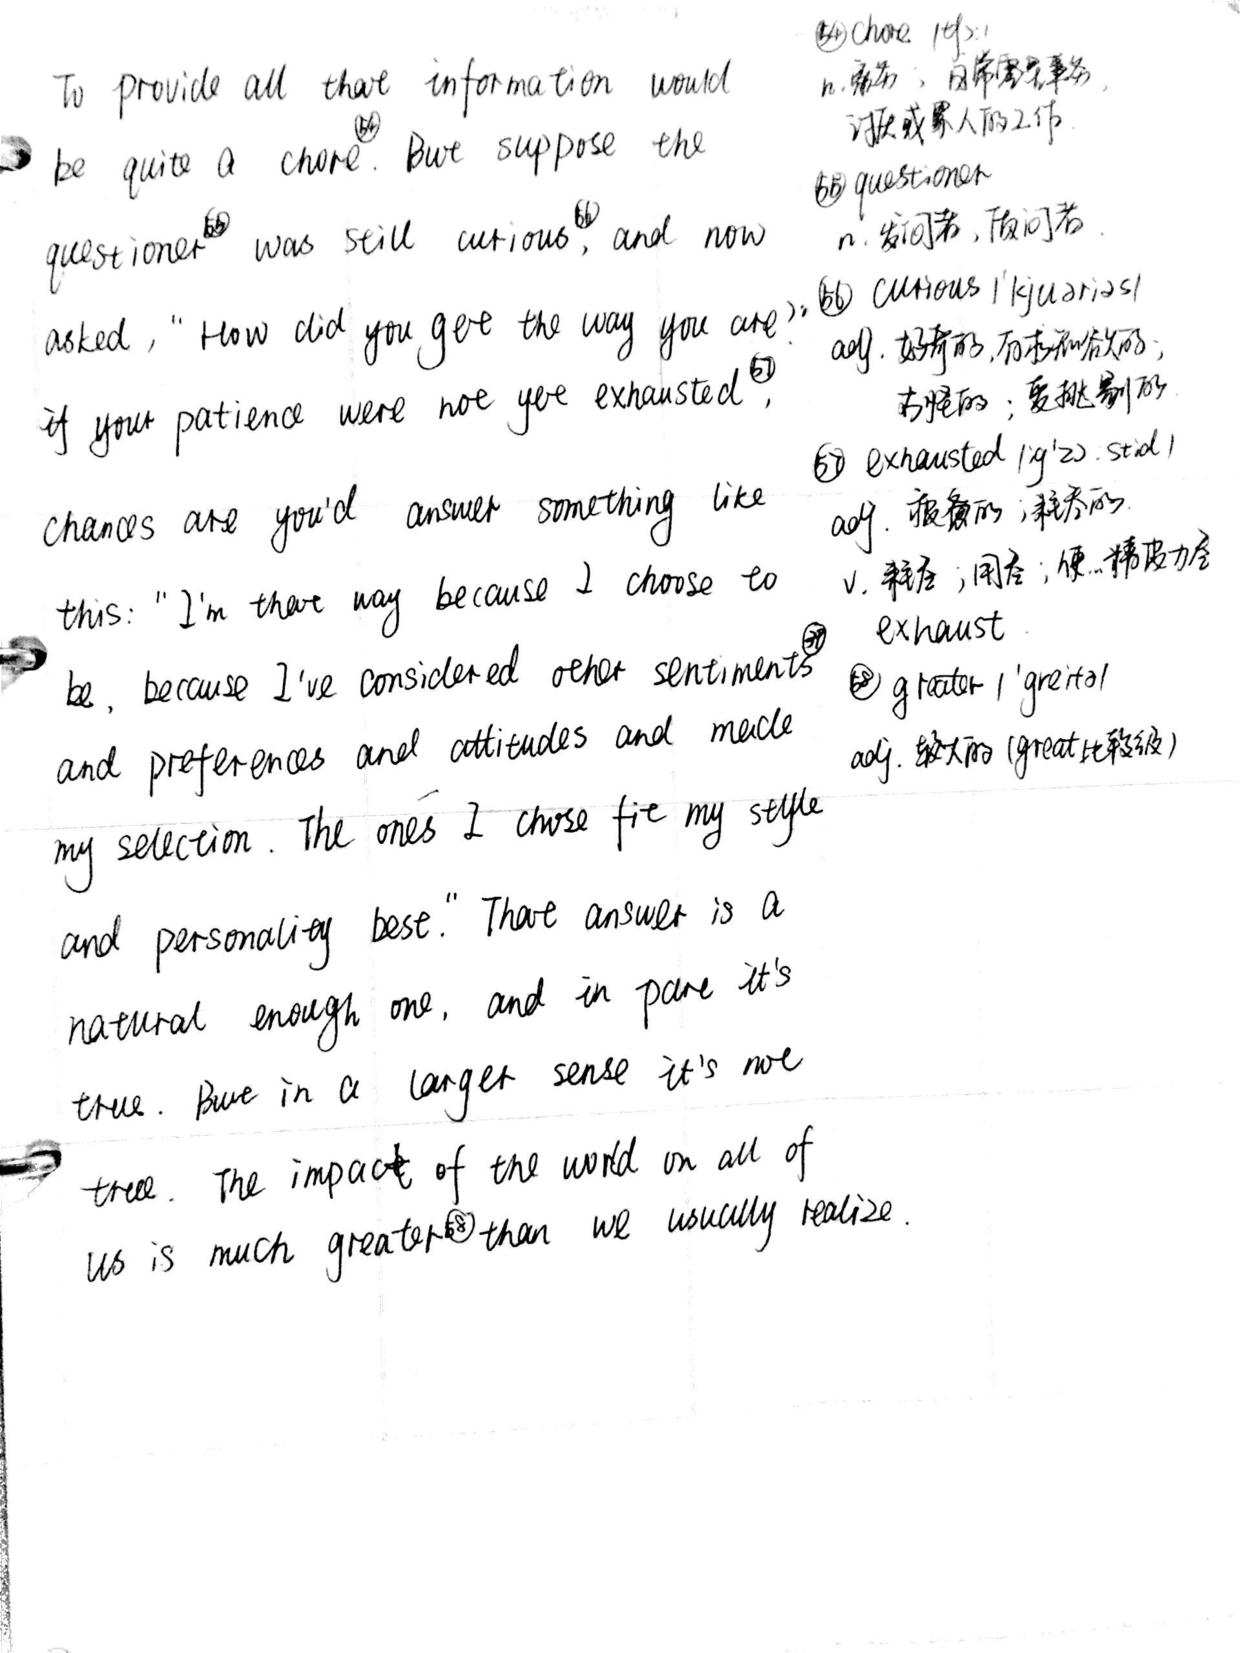 To provide all that information would
be quite a chore㊴. But suppose the
questioner㊺ was still curious, and now
asked, "How did you get the way you are?"
if your patience were not yet exhausted,
chances are you'd answer something like
this: "I'm that way because I choose to
be, because I've considered other sentiments
and preferences and attitudes and made
my selection. The ones I chose fit my style
and personality best." That answer is a
natural enough one, and in part it's
true. But in a larger sense it's not
true. The impact of the world on all of
us is much greater than we usually realize.
chore
n.
讨厌或累人的工作
questioner
n. 发问者,
curious
adj. 好奇的,有求知欲的;
古怪的;爱挑剔的
exhausted
adj. 疲惫的;耗尽的
v. 耗尽;用尽;使…精疲力尽
exhaust
greater
adj. 较大的 (great比较级)